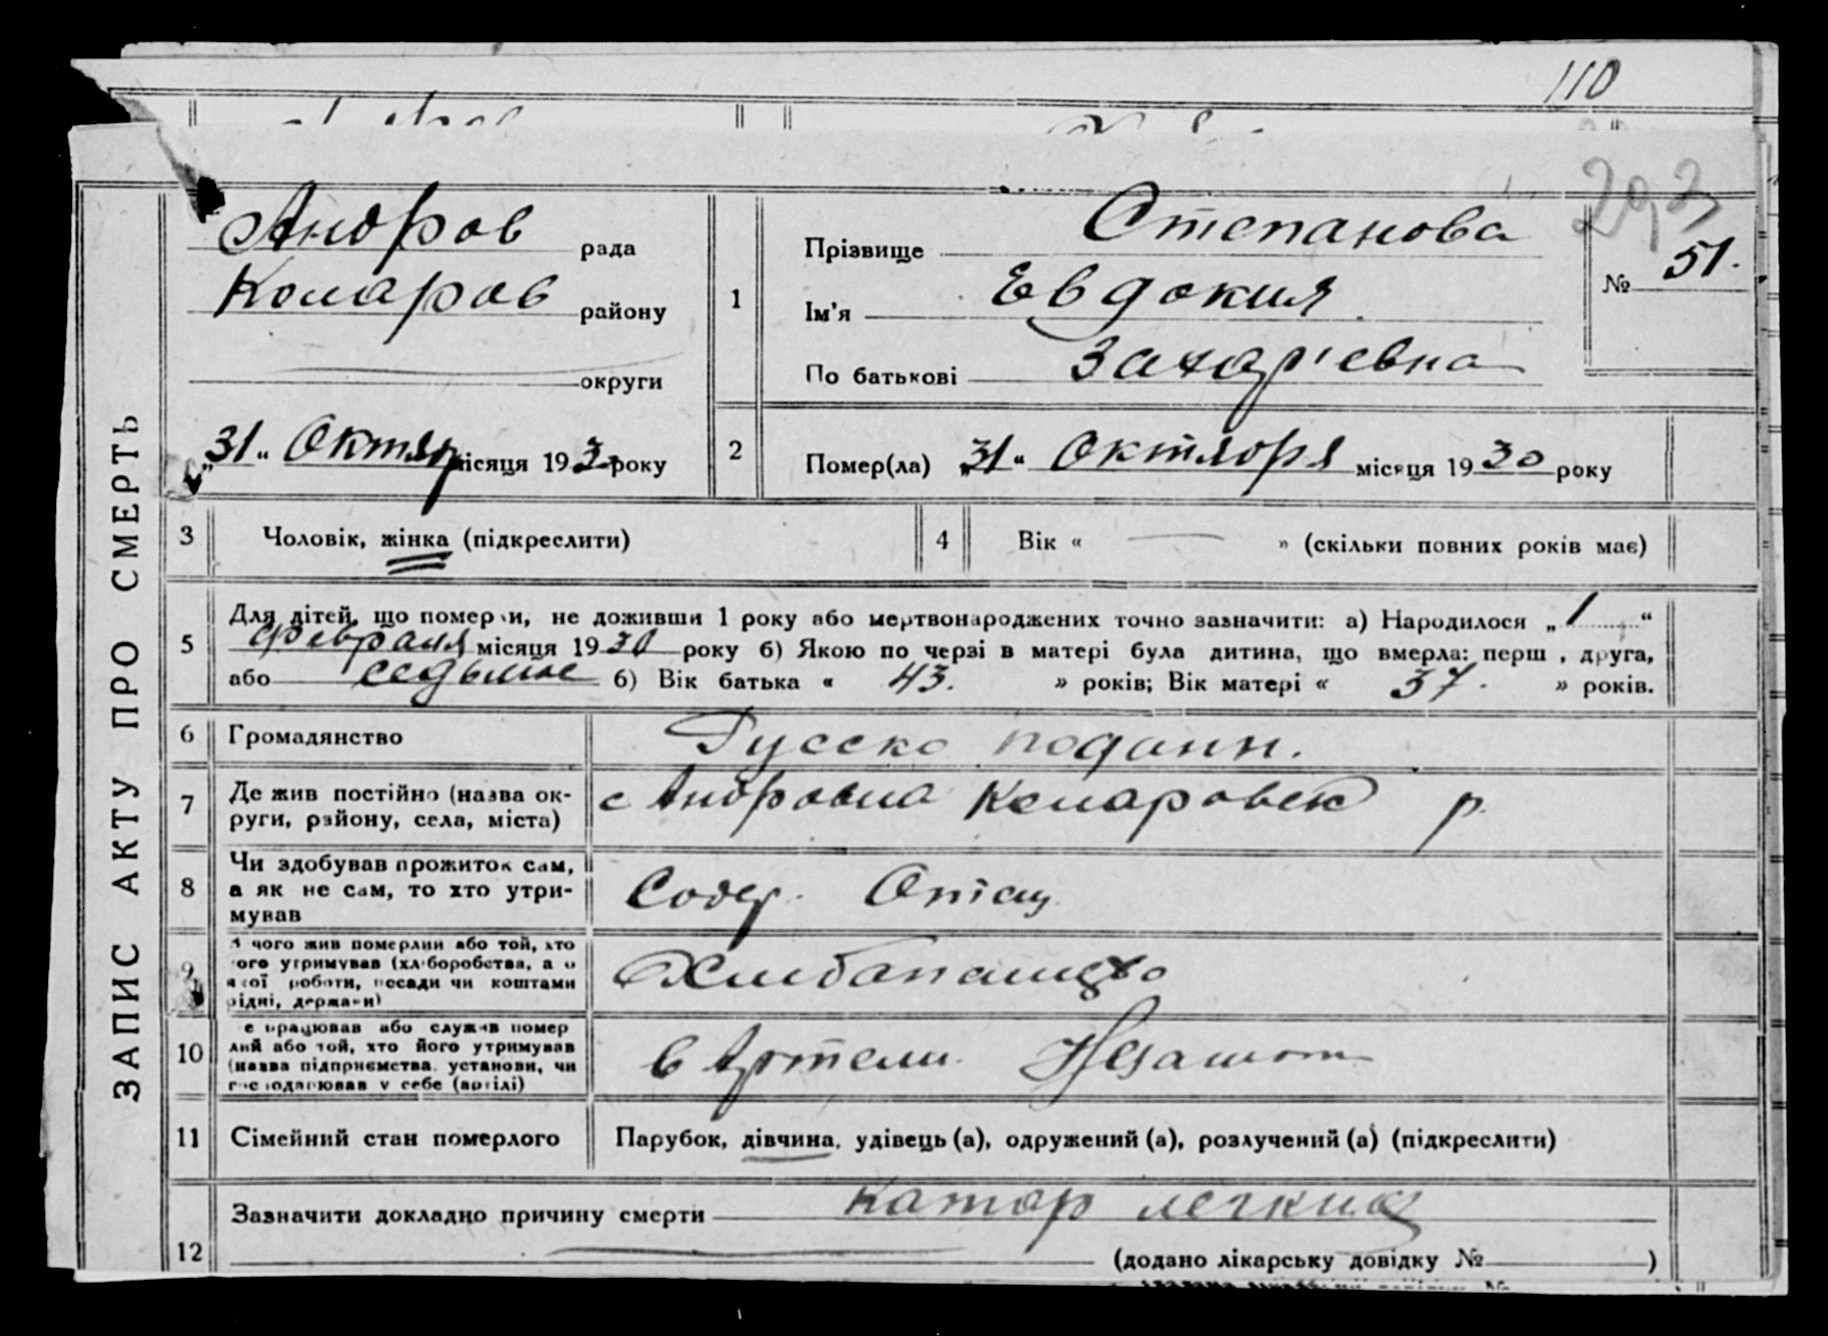 110
293
ЗАПИС АКТУ ПРО СМЕРТЬ
Андров рада
Комаров району
округи
„31“ Октяр місяця 193 року
1 Прізвище Степанова
Ім'я Евдокия
По батькові Захарьевна
№ 51.
2 Помер(ла) „31“ Октяоря місяця 1930 року
3 Чоловік, жінка (підкреслити)
4 Вік « — » (скільки повних років має)
5 Для дітей, що померли, не доживши 1 року або мертвонароджених точно зазначити: а) Народилося „1“
Февраля місяця 1930 року б) Якою по черзі в матері була дитина, що вмерла: перша, друга,
або седьмое б) Вік батька « 43. » років; Вік матері « 37. » років.
6 Громадянство Русско поданн.
7 Де жив постійно (назва ок-
руги, району, села, міста) с Андровка Комаровск р.
8 Чи здобував прожиток сам,
а як не сам, то хто утри-
мував Содер. Отец
9 З чого жив померлий або той, хто
його утримував (хліборобства, а о
якої роботи, посади чи коштами
рідні, держави) Хлибапашцво
10 Де працював або служив помер
лий або той, хто його утримував
(назва підприємства, установи, чи
господарював у себе (артілі) в Артели Незамот
11 Сімейний стан померлого Парубок, дівчина, удівець (а), одружений (а), розлучений (а) (підкреслити)
12 Зазначити докладно причину смерти катар легких
(додано лікарську довідку № )